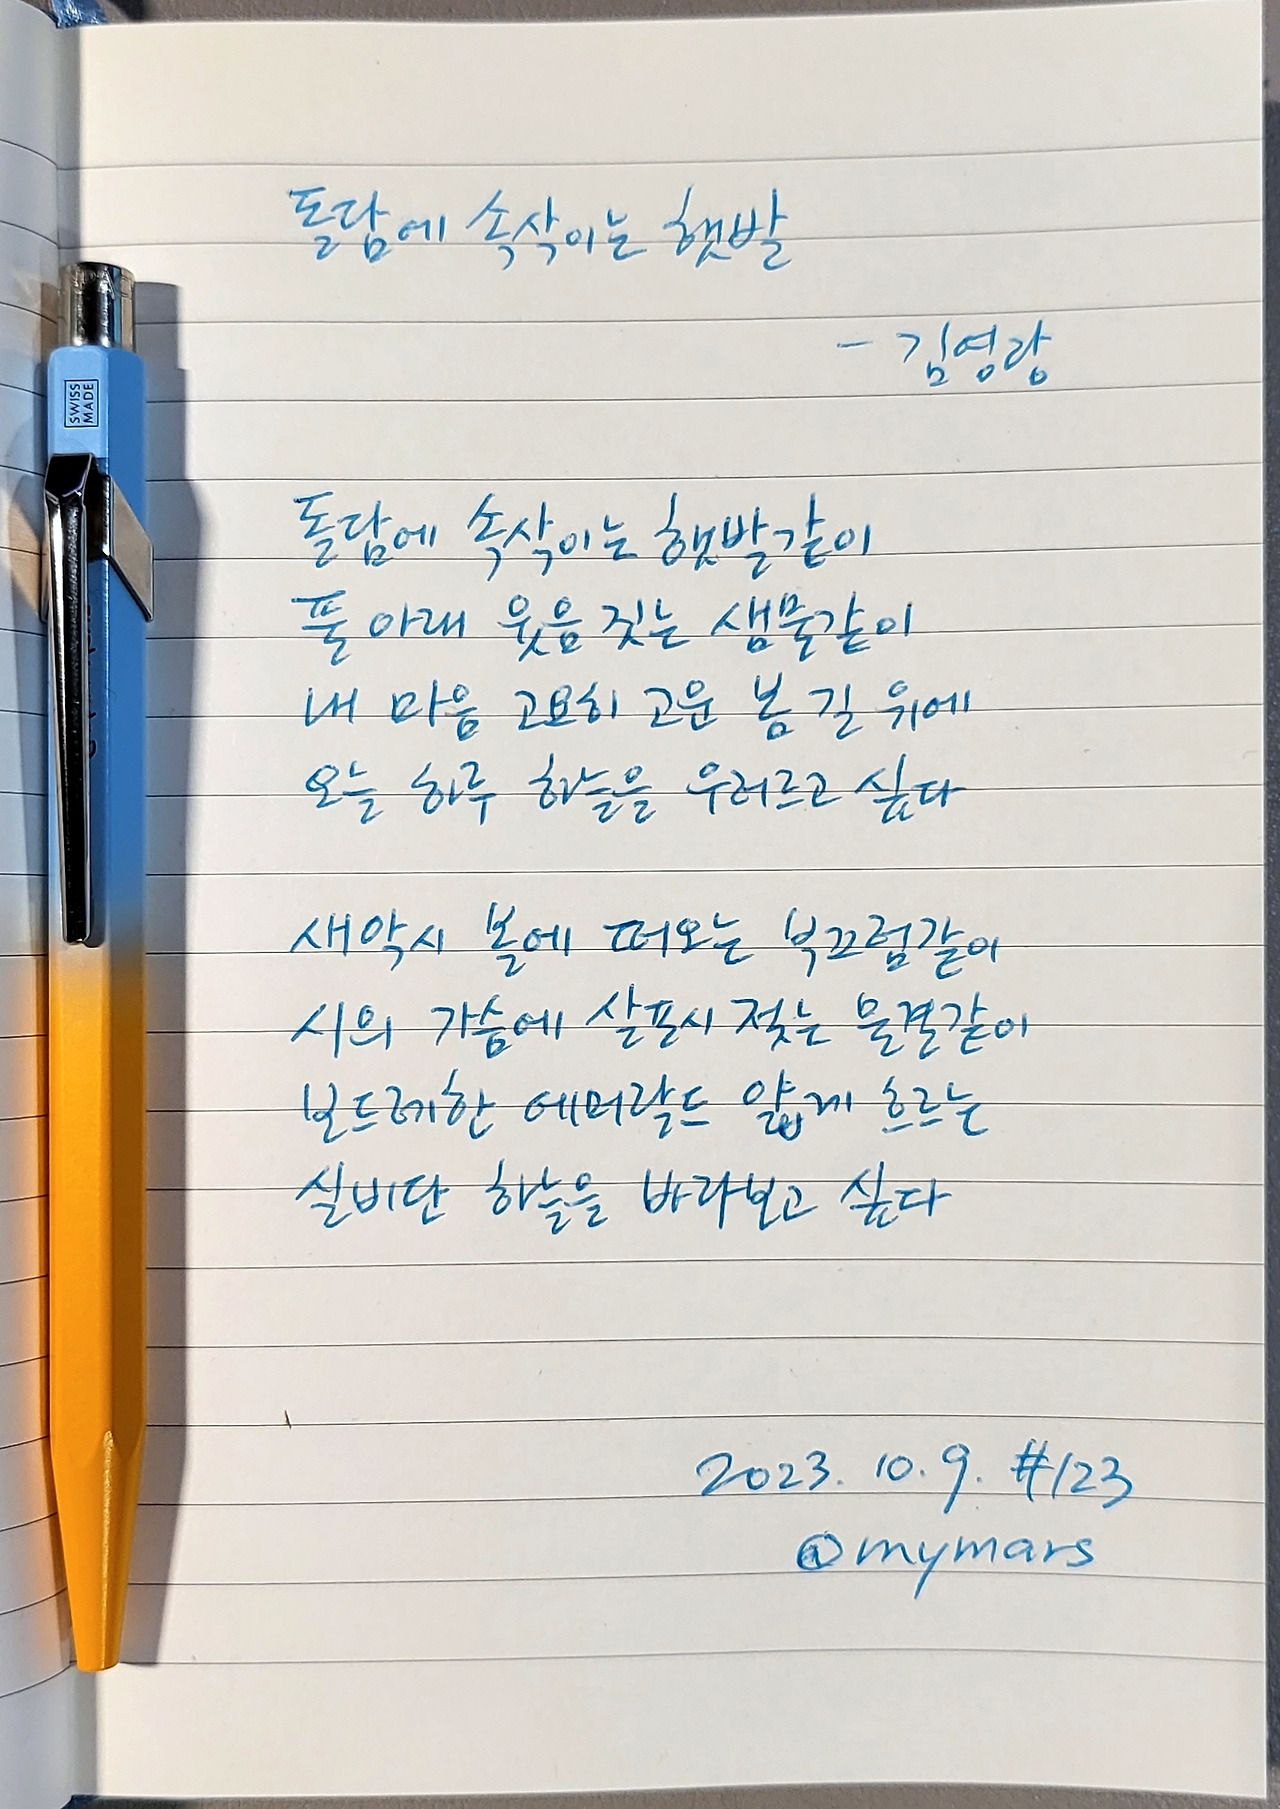 돌담에 속삭이는 햇발
- 김영랑
돌담에 속삭이는 햇발같이
풀 아래 웃음 짓는 샘물같이
내 마음 고요히 고운 봄 길 위에
오늘 하루 하늘을 우러르고 싶다
새악시 볼에 떠오는 부끄럼같이
시의 가슴에 살포시 젖는 물결같이
보드레한 에머랄드 얇게 흐르는
실비단 하늘을 바라보고 싶다
2023. 10. 9. #123
@mymars
SWISS
MADE